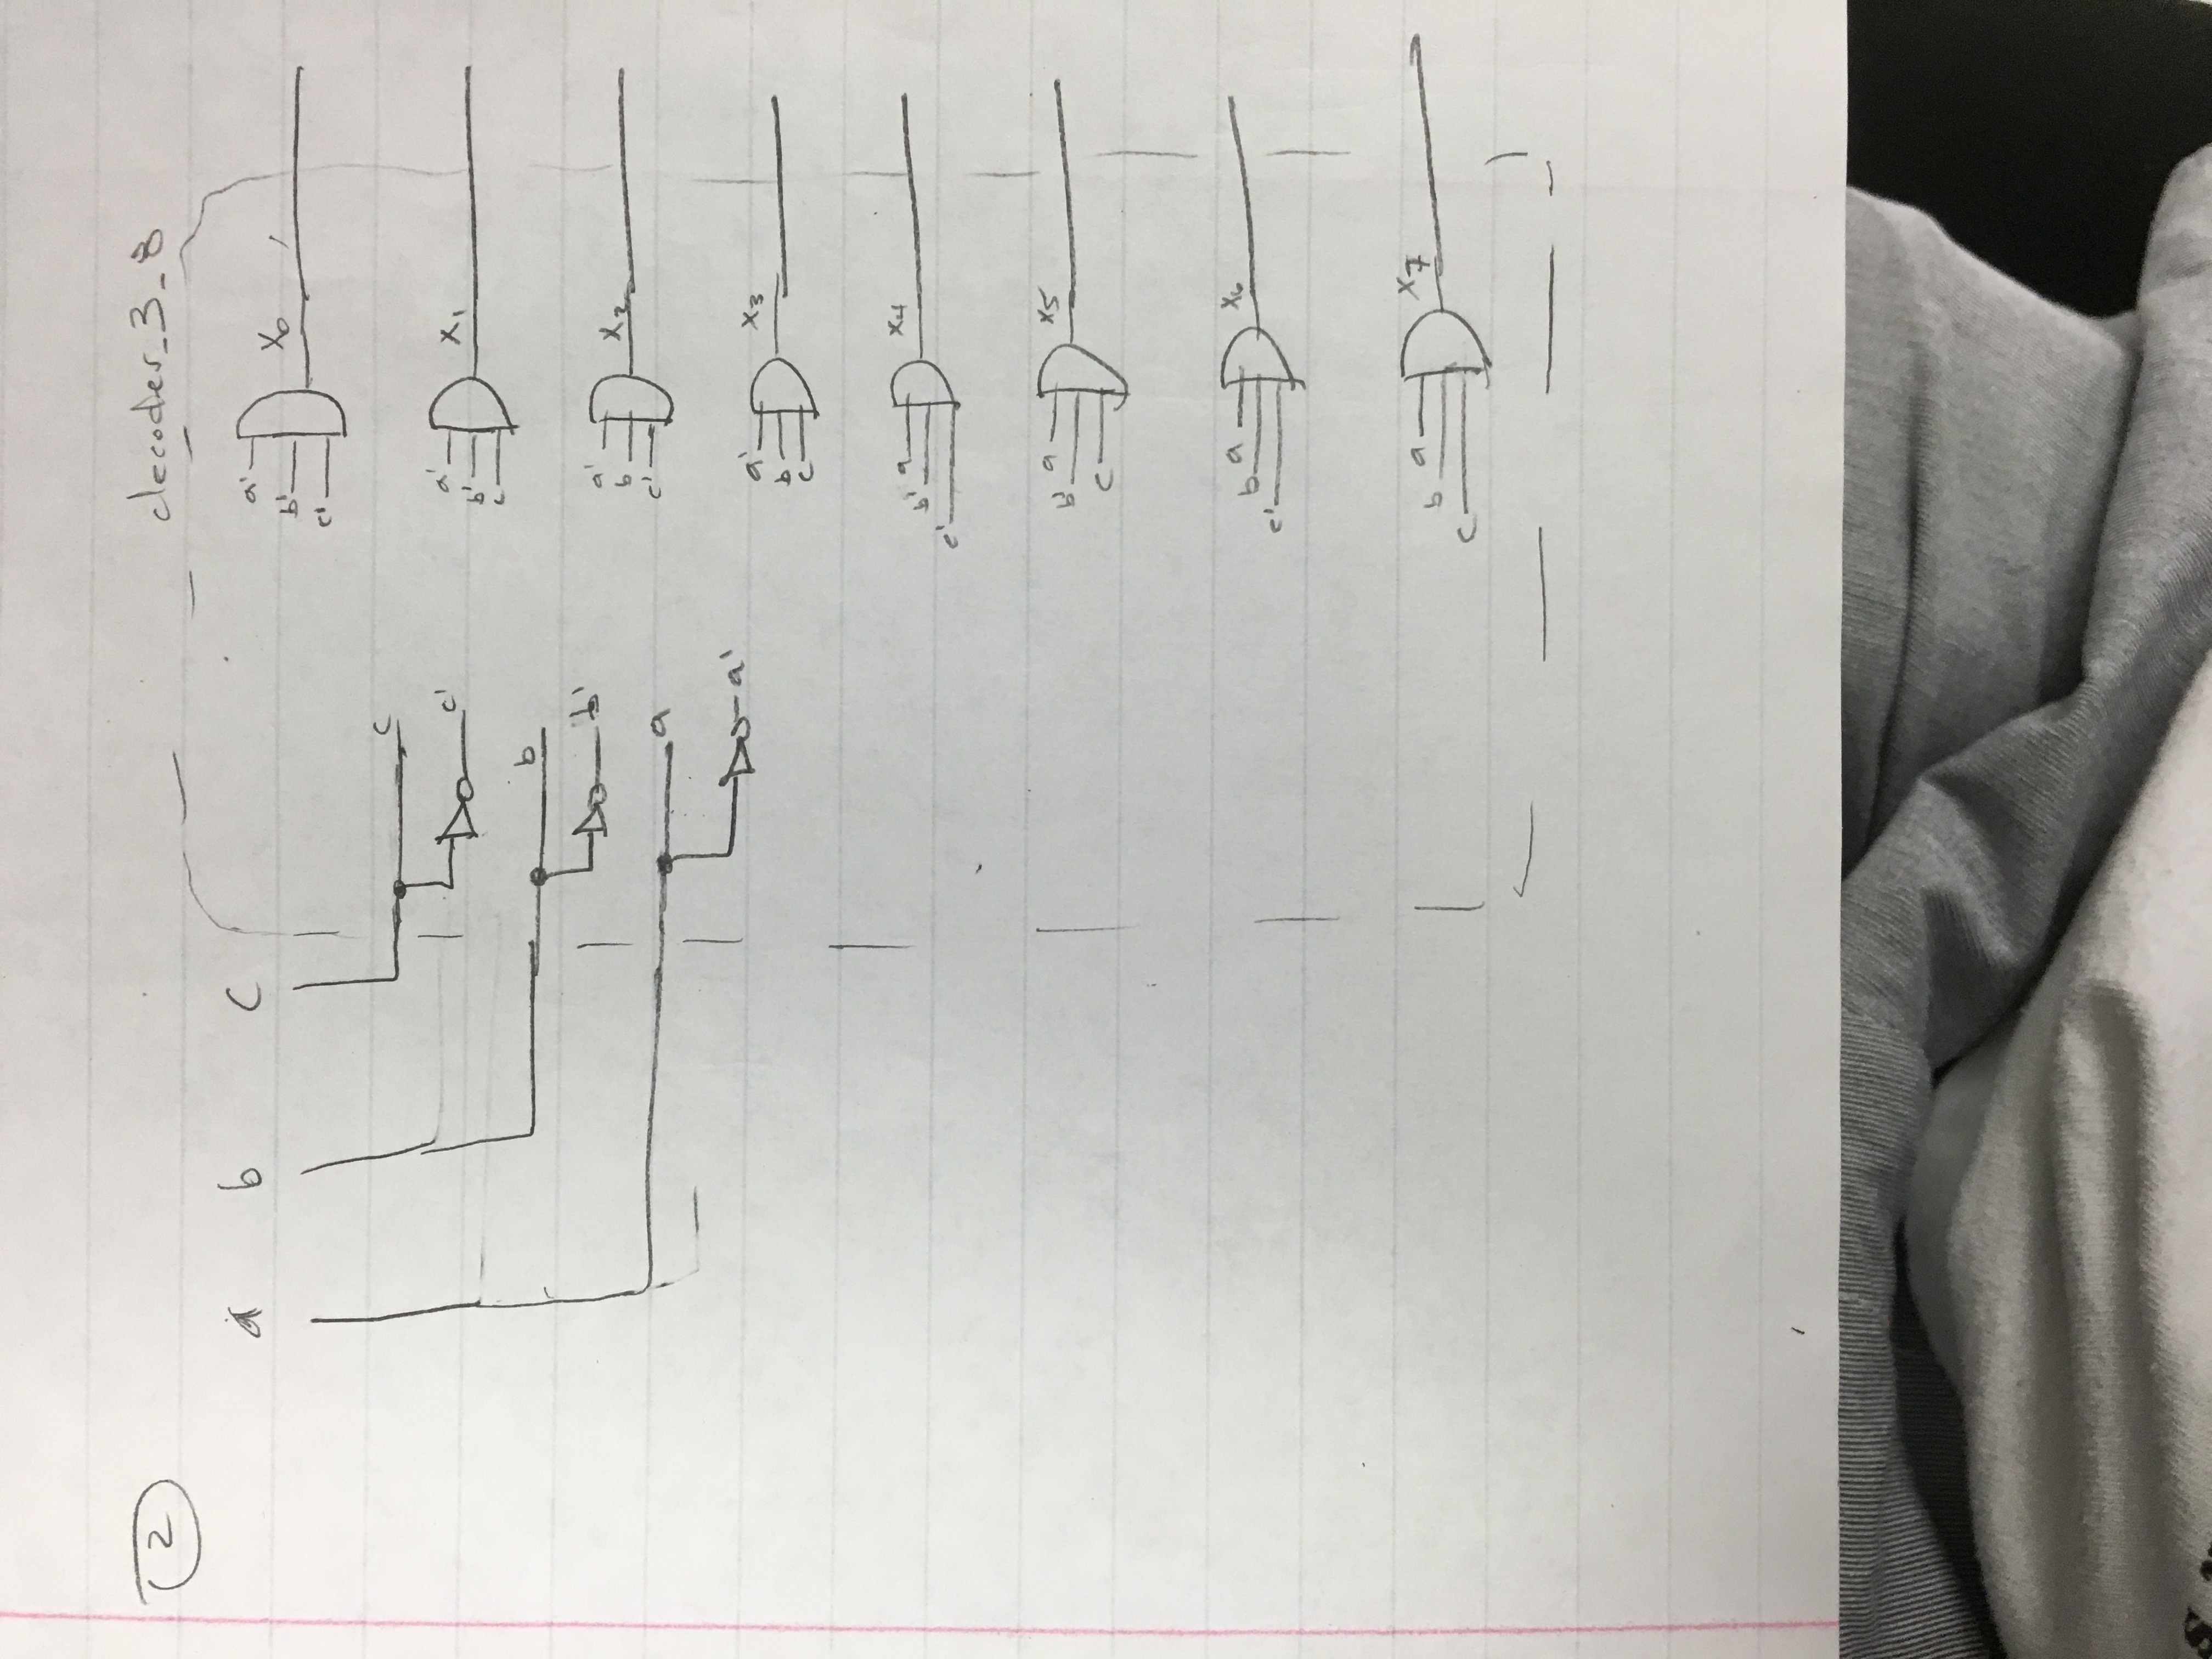 2
decoder_3_8
a b c
a'
b'
c'
x0
c
c'
b
b'
a
a'
a'
b'
c
x1
a'
b
c'
x2
a'
b
c
x3
a
b'
c'
x4
a
b'
c
x5
a
b
c'
x6
a
b
c
x7